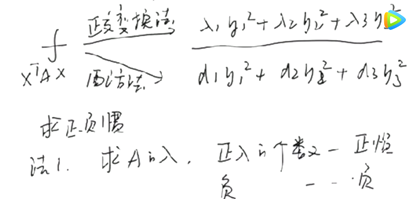 f 正交变换法 λ₁y₁²+λ₂y₂²+λ₃y₃²
xᵀAx 配方法 d₁y₁²+d₂y₂²+d₃y₃²
求正.负惯
法1. 求A的λ. 正λ的个数 = 正惯
负 - - - 负